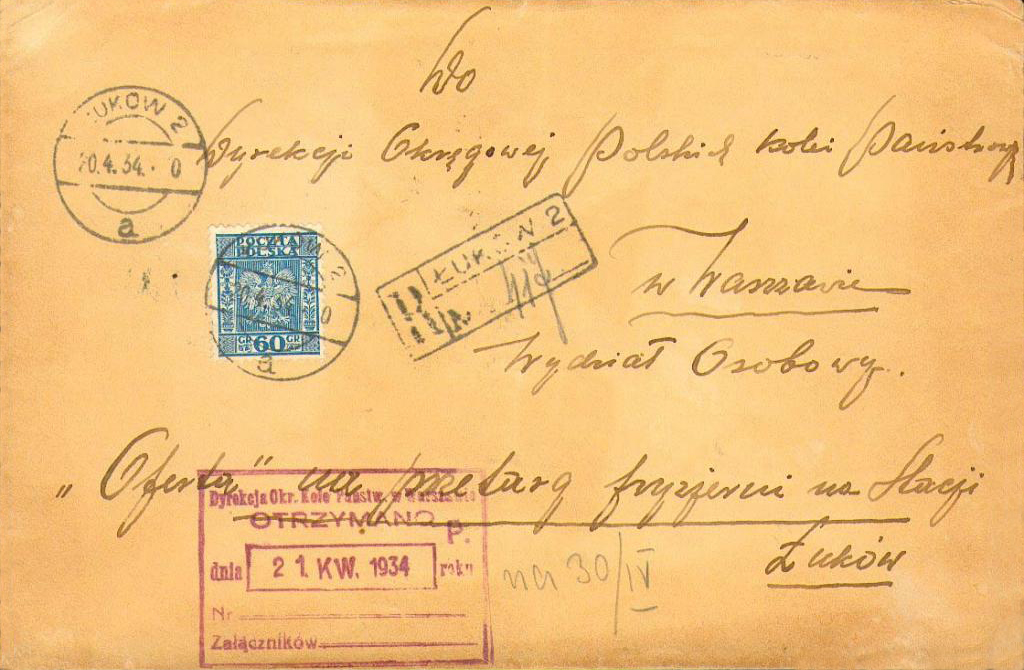 Do
Dyrekcji Okręgowej Polskich kolei Państwowych
w Warszawie
Wydział Osobowy.
ŁUKÓW 2
20.4.34. 0
a
POCZTA
POLSKA
GR 60 GR
a
ŁUKÓW 2
R
"Oferta" na przetarg fryzjerni na Stacji
Łuków
Dyrekcja Okr. Kolei Państw. w Warszawie
OTRZYMANO
P.
dnia 21. KW. 1934 roku
Nr
Załączników
na 30/IV